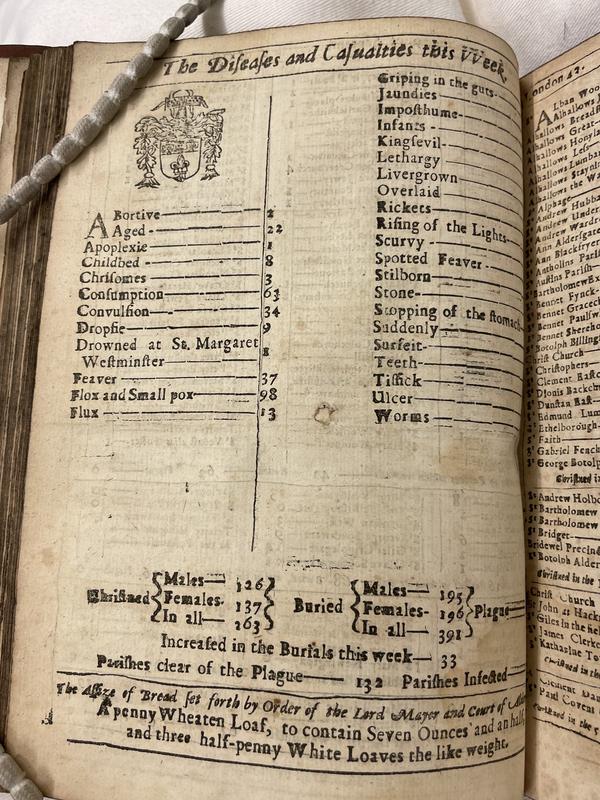 The Diſeaſes and Caſualties this Week.
ABortive 2
Aged 22
Apoplexie 1
Childbed 8
Chriſomes 3
Conſumption 63
Convulſion 34
Dropſie 9
Drowned at St. Margaret
Weſtminſter 1
Feaver 37
Flox and Small pox 98
Flux 13
Griping in the guts
Jaundies
Impoſthume
Infants
Kingſevil
Lethargy
Livergrown
Overlaid
Rickets
Riſing of the Lights
Scurvy
Spotted Feaver
Stilborn
Stone
Stopping of the ſtomach
Suddenly
Surfeit
Teeth
Tiſſick
Ulcer
Worms
Chriſtned
Males 126
Females 137
In all 263
Buried
Males 195
Females 196
In all 391
Plague
Increaſed in the Burials this week 33
Pariſhes clear of the Plague 132 Pariſhes Infected
The Aſſize of Bread ſet forth by Order of the Lord Mayor and Court of
A penny Wheaten Loaf, to contain Seven Ounces and an half,
and three half-penny White Loaves the like weight.
London 42.
Alban
Alhallows
Alhallows
hallows Great
hallows
hallows Leſs
hallows
hallows
hallows the
Alphage
Andrew Hubba
Andrew Under
Andrew Wardro
Ann Alderſgate
Ann Blackfryer
Antholins Pariſ
Auſtins Pariſh
Bartholomew Ex
Bennet Fynck
Bennet Gracech
Bennet Paulſw
Bennet Shereho
Botolph Billing
Chriſt Church
Chriſtophers
Clement Eaſtc
Dionis Backch
Dunſtan Eaſt
Edmund Lum
Ethelborough
St Faith
St Gabriel Fench
St George Botolp
Chriſtned in
St Andrew Holbo
St Bartholomew
St Bartholomew
St Bridget
Bridewel Precinc
St Botolph Alder
Chriſtned in the
Chriſt Church
John at Hackn
Giles in the fiel
James Clerke
Katharine To
Chriſtned in the
Clement Dan
Paul Covent
Chriſtned in the